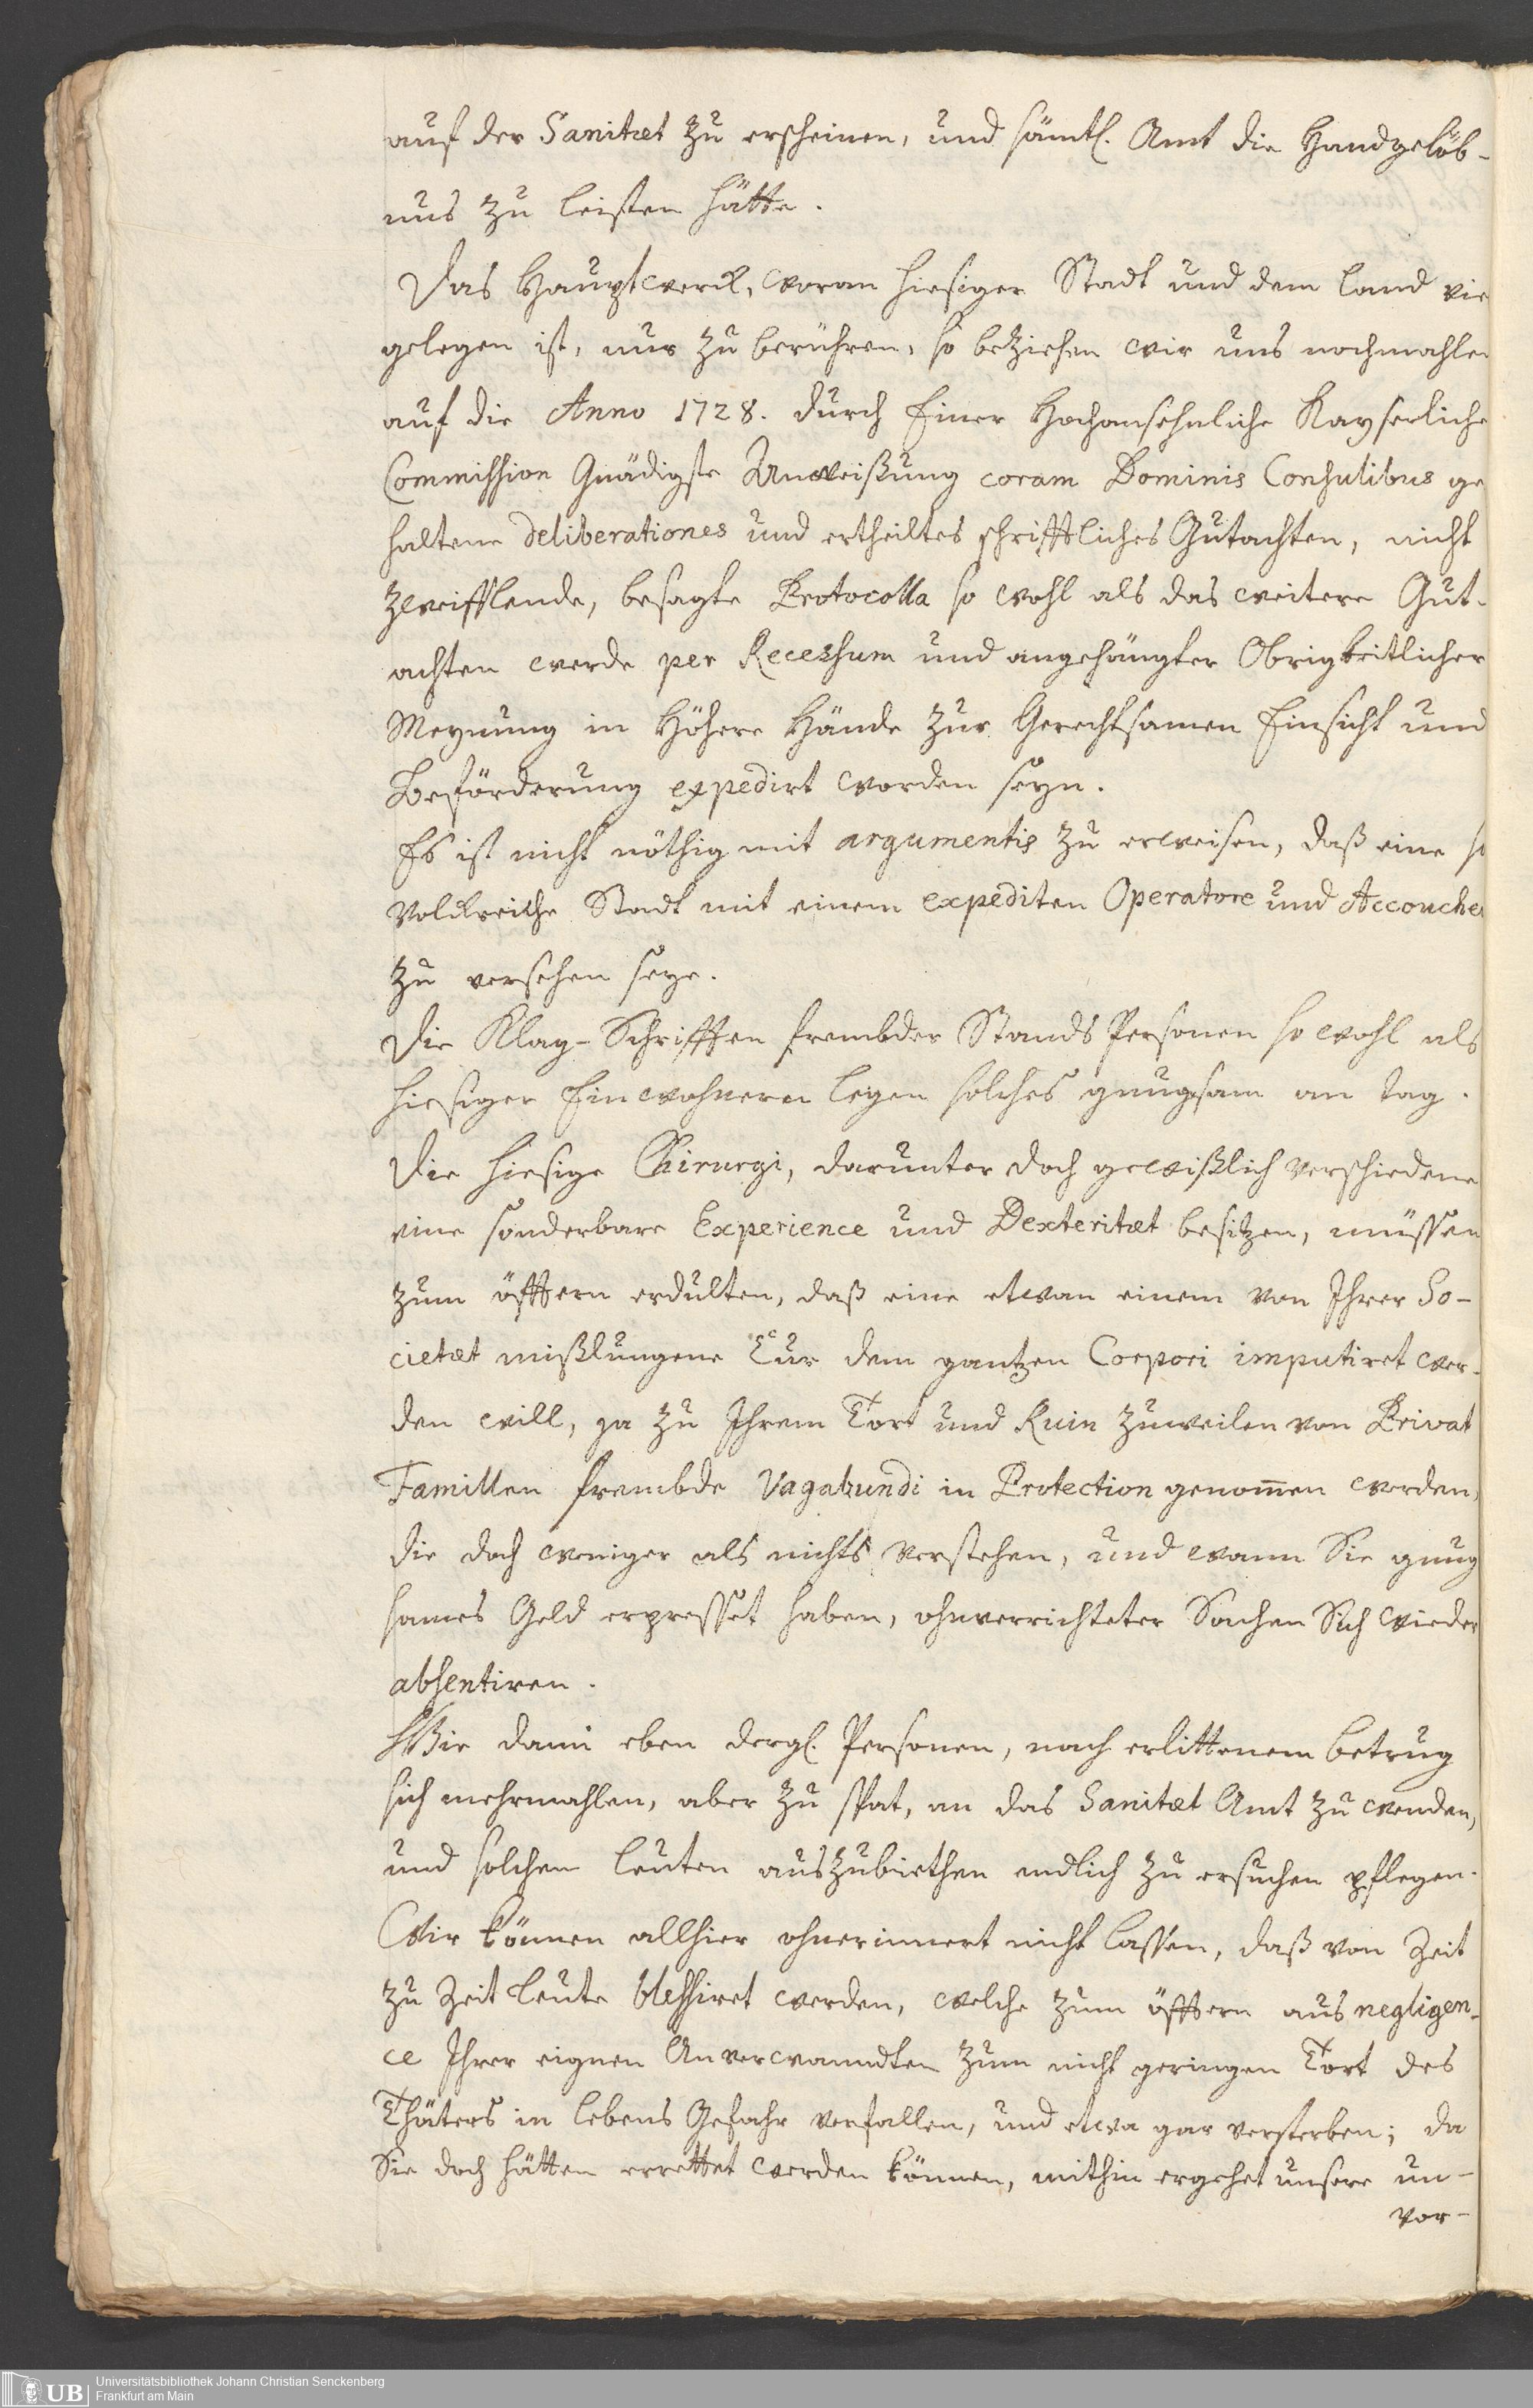 auf der Sanitæt zu erscheinen, und sämtl. Amt die Handgelöb-
nus zu leisten hätte.
Das Hauptwerck, woran hiesiger Stadt und dem Land vie
gelegen ist, nur zu berühren, so beziehen wir uns nochmahlen
auf die Anno 1728. durch Einer Hochansehnliche Kayserliche
Commission Gnädigste Anweißung coram Dominis Consulibus ge
haltene deliberationes und ertheiltes schrifftliches Gutachten, nicht
zweifflende, besagte Protocolla so wohl als das weitere Gut-
achten werde per Recessum und angehängter Obrigkeitlicher
Meynung in Höhere Hände zur Gerechtsamen Einsicht und
Beförderung expedirt worden seyn.
Es ist nicht nöthig mit argumentis zu erweisen, daß eine so
Volckreiche Stadt mit einem expediten Operatore und Accouche
zu versehen seye.
Die Klag-Schrifften frembder Stands Personen so wohl als
hiesiger Einwohnern legen solches gnugsam an Tag.
Die hiesige Chirurgi, darunter doch gewißlich verschiedene
eine sonderbare Experience und Dexteritæt besitzen, müssen
zum öfftern erdulten, daß eine etwan einem von Ihrer So-
cietæt mißlungene Cur dem gantzen Corpori imputiret wer-
den will, ja zu Ihrem Tort und Ruin zuweilen von Privat
Famillen frembde Vagabundi in Protection genom̅en werden,
die doch weniger als nichts verstehen, und wann Sie gnug
sames Geld erpresset haben, ohnverrichteter Sachen Sich wieder
absentiren.
Wie dann eben dergl. Personen, nach erlittenem betrug
sich mehrmahlen, aber zu spat, an das Sanitæt Amt zu wenden,
und solchen Leuten auszubiethen endlich zu ersuchen pflegen.
Wir können allhier ohnerinnert nicht lassen, daß von Zeit
zu Zeit Leute blessiret werden, welche zum öfftern aus negligen-
ce Ihrer eignen Anverwanndten zum nicht geringen Tort des
Thäters in Lebens Gefahr verfallen, und etwa gar versterben; da
Sie doch hätten errettet werden können, mithin ergehet unsere un-
vor-
UB
Universitätsbibliothek Johann Christian Senckenberg
Frankfurt am Main